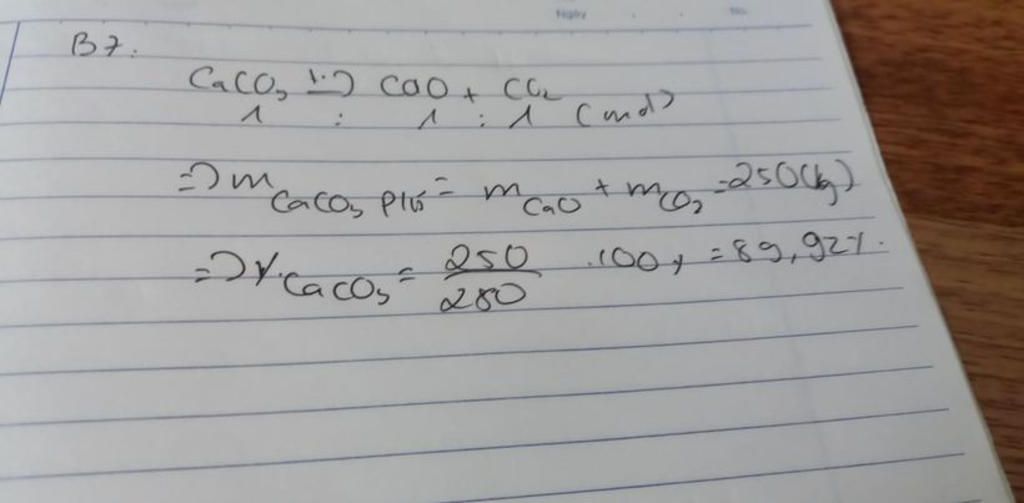 Ngày No.
B7.
CaCO3 → CaO + CO2
1 : 1 : 1 (mol)
=> m CaCO3 pư = m CaO + m CO2 = 250 (kg)
=> % CaCO3 = 250/280 .100% = 89,92%.